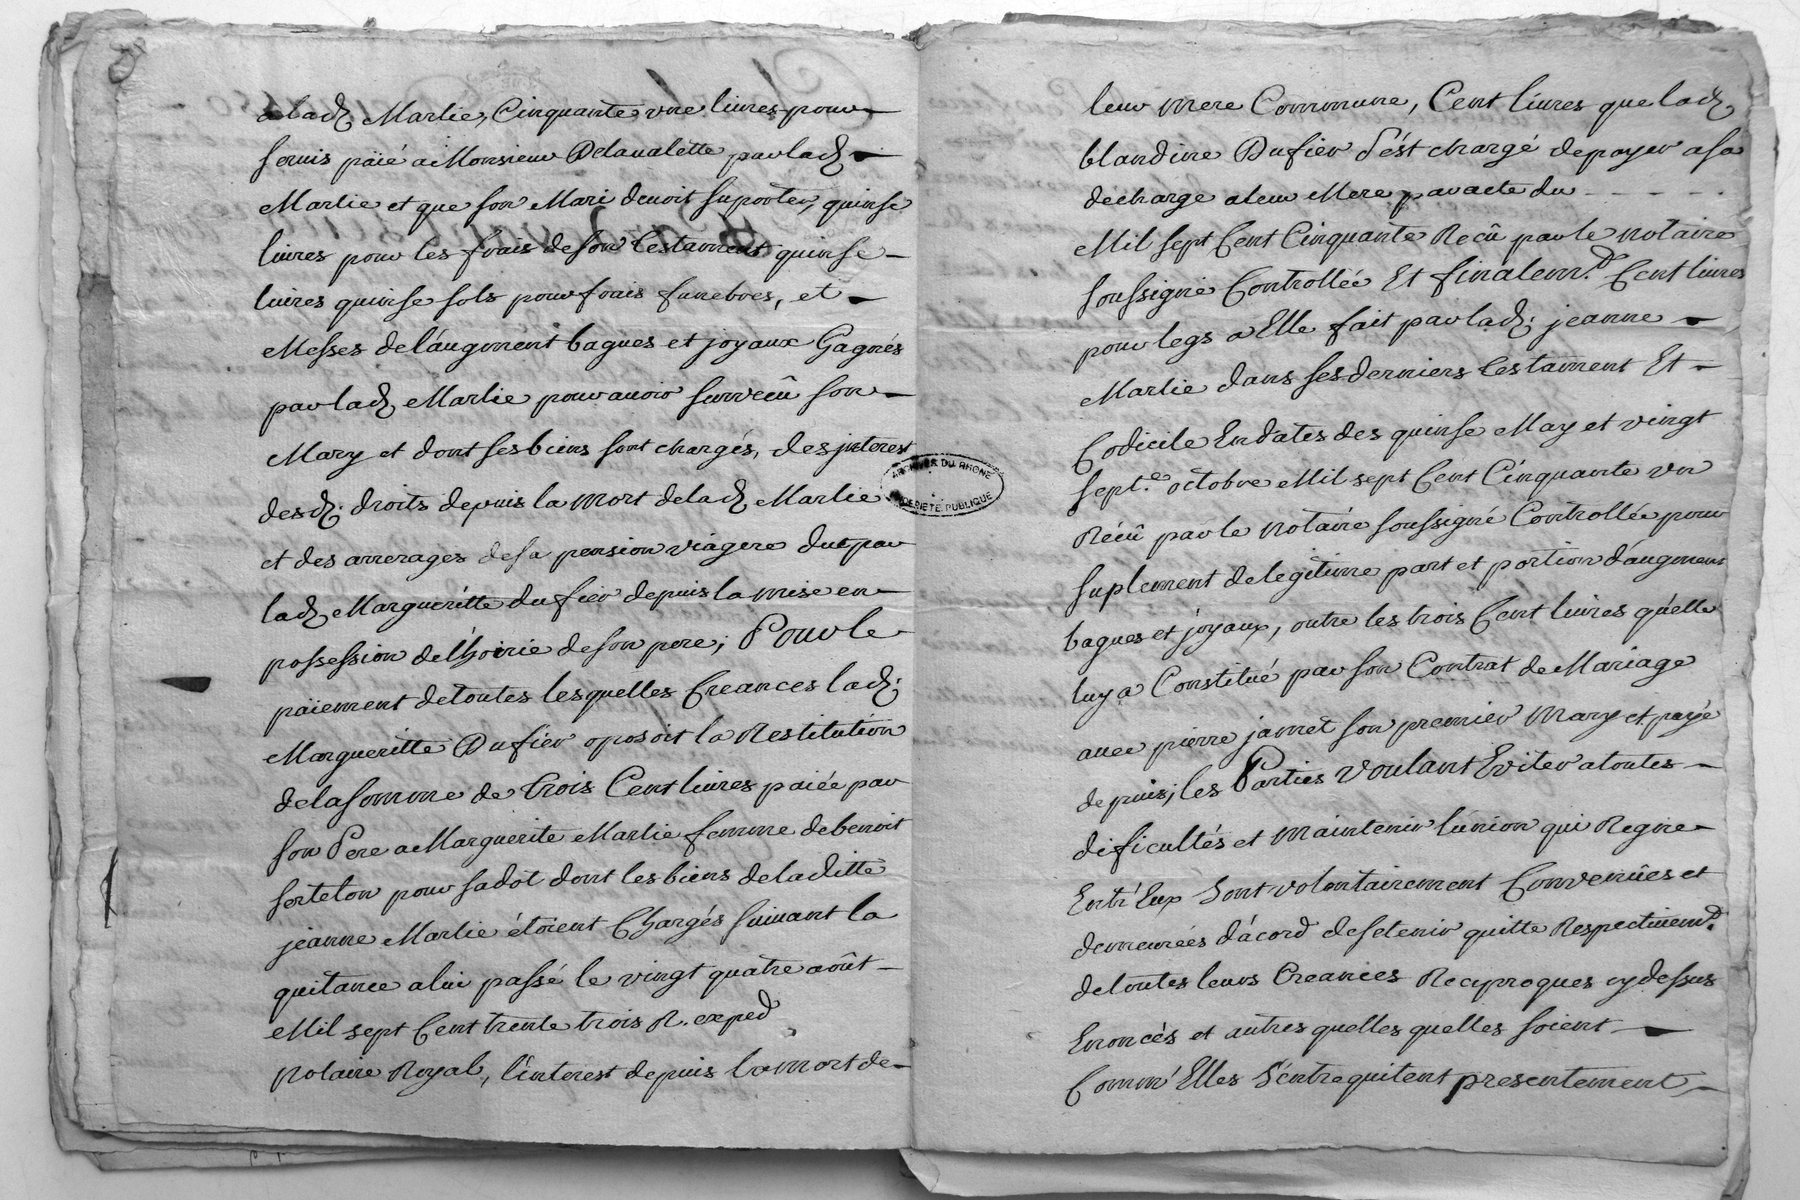 a lad. Marlie, Cinquante une livres pour
servis païé a Monsieur Delavalette par lad.
Marlie et que son Mari devoit suporter, quinse
livres pour les frais de son testament quinse
livres quinse sols pour frais funebres, et
Messes de l'augment bagues et joyaux Gagnés
par lad. Marlie pour avoir survecû son
Mary et dont ses biens sont chargés, des jnterest
desd. droits depuis la mort de lad. Marlie
et des arrerages de sa pension viagere due par
lad. Margueritte dufier depuis la mise en
possession de l'hoirie de son pere; Pour le
païement de toutes lesquelles Creances lad.
Margueritte Dufier oposoit la Restitution
de la somme de trois Cent livres païée par
son Pere a Marguerite Marlie femme de benoit
serteton pour sa dot dont les biens de laditte
jeanne Marlie étoient Chargés suivant la
quitance a lui passé le vingt quatre août
Mil sept Cent trente trois R. exped.
Notaire Royal, l'interest depuis la mort de
ARCHIVES DU RHONE
PROPRIETE PUBLIQUE
leur mere Commune, Cent livres que lad.
blandine Dufier s'ést chargé de payer a sa
décharge a leur Mere par acte du - - - - -
Mil sept Cent Cinquante Recû par le notaire
soussigné Controllée Et finalem.t Cent livres
pour legs a Elle fait par lad. jeanne
Marlie dans ses derniers testament Et
Codicile En dates des quinse May et vingt
sept.e octobre Mil sept Cent Cinquante un
Récû par le notaire soussigné Controllée pour
suplement de legitime part et portion d'augment
bagues et joyaux, outre les trois Cent livres qu'elle
luy a Constitué par son Contrat de Mariage
avec pierre jamet son premier Mary et payé
depuis; les Parties Voulant Eviter a toutes
dificultés et maintenir l'union qui Regne
Entr'Eux sont volontairement Convenûes et
demeurées d'acord de se tenir quitte Respectivem.t
de toutes leurs Creances Reciproques cy dessus
Enoncés et autres quelles quelles soient
Comm'Elles s'entrequitent presentement